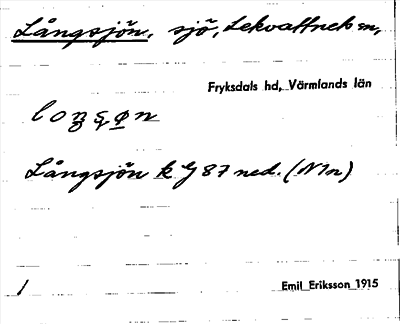 Långsjön, sjö, Lekvattnet sn,
Fryksdals hd, Värmlands län
Långsjön k G 87 ned. (N1n)
1
Emil Eriksson 1915